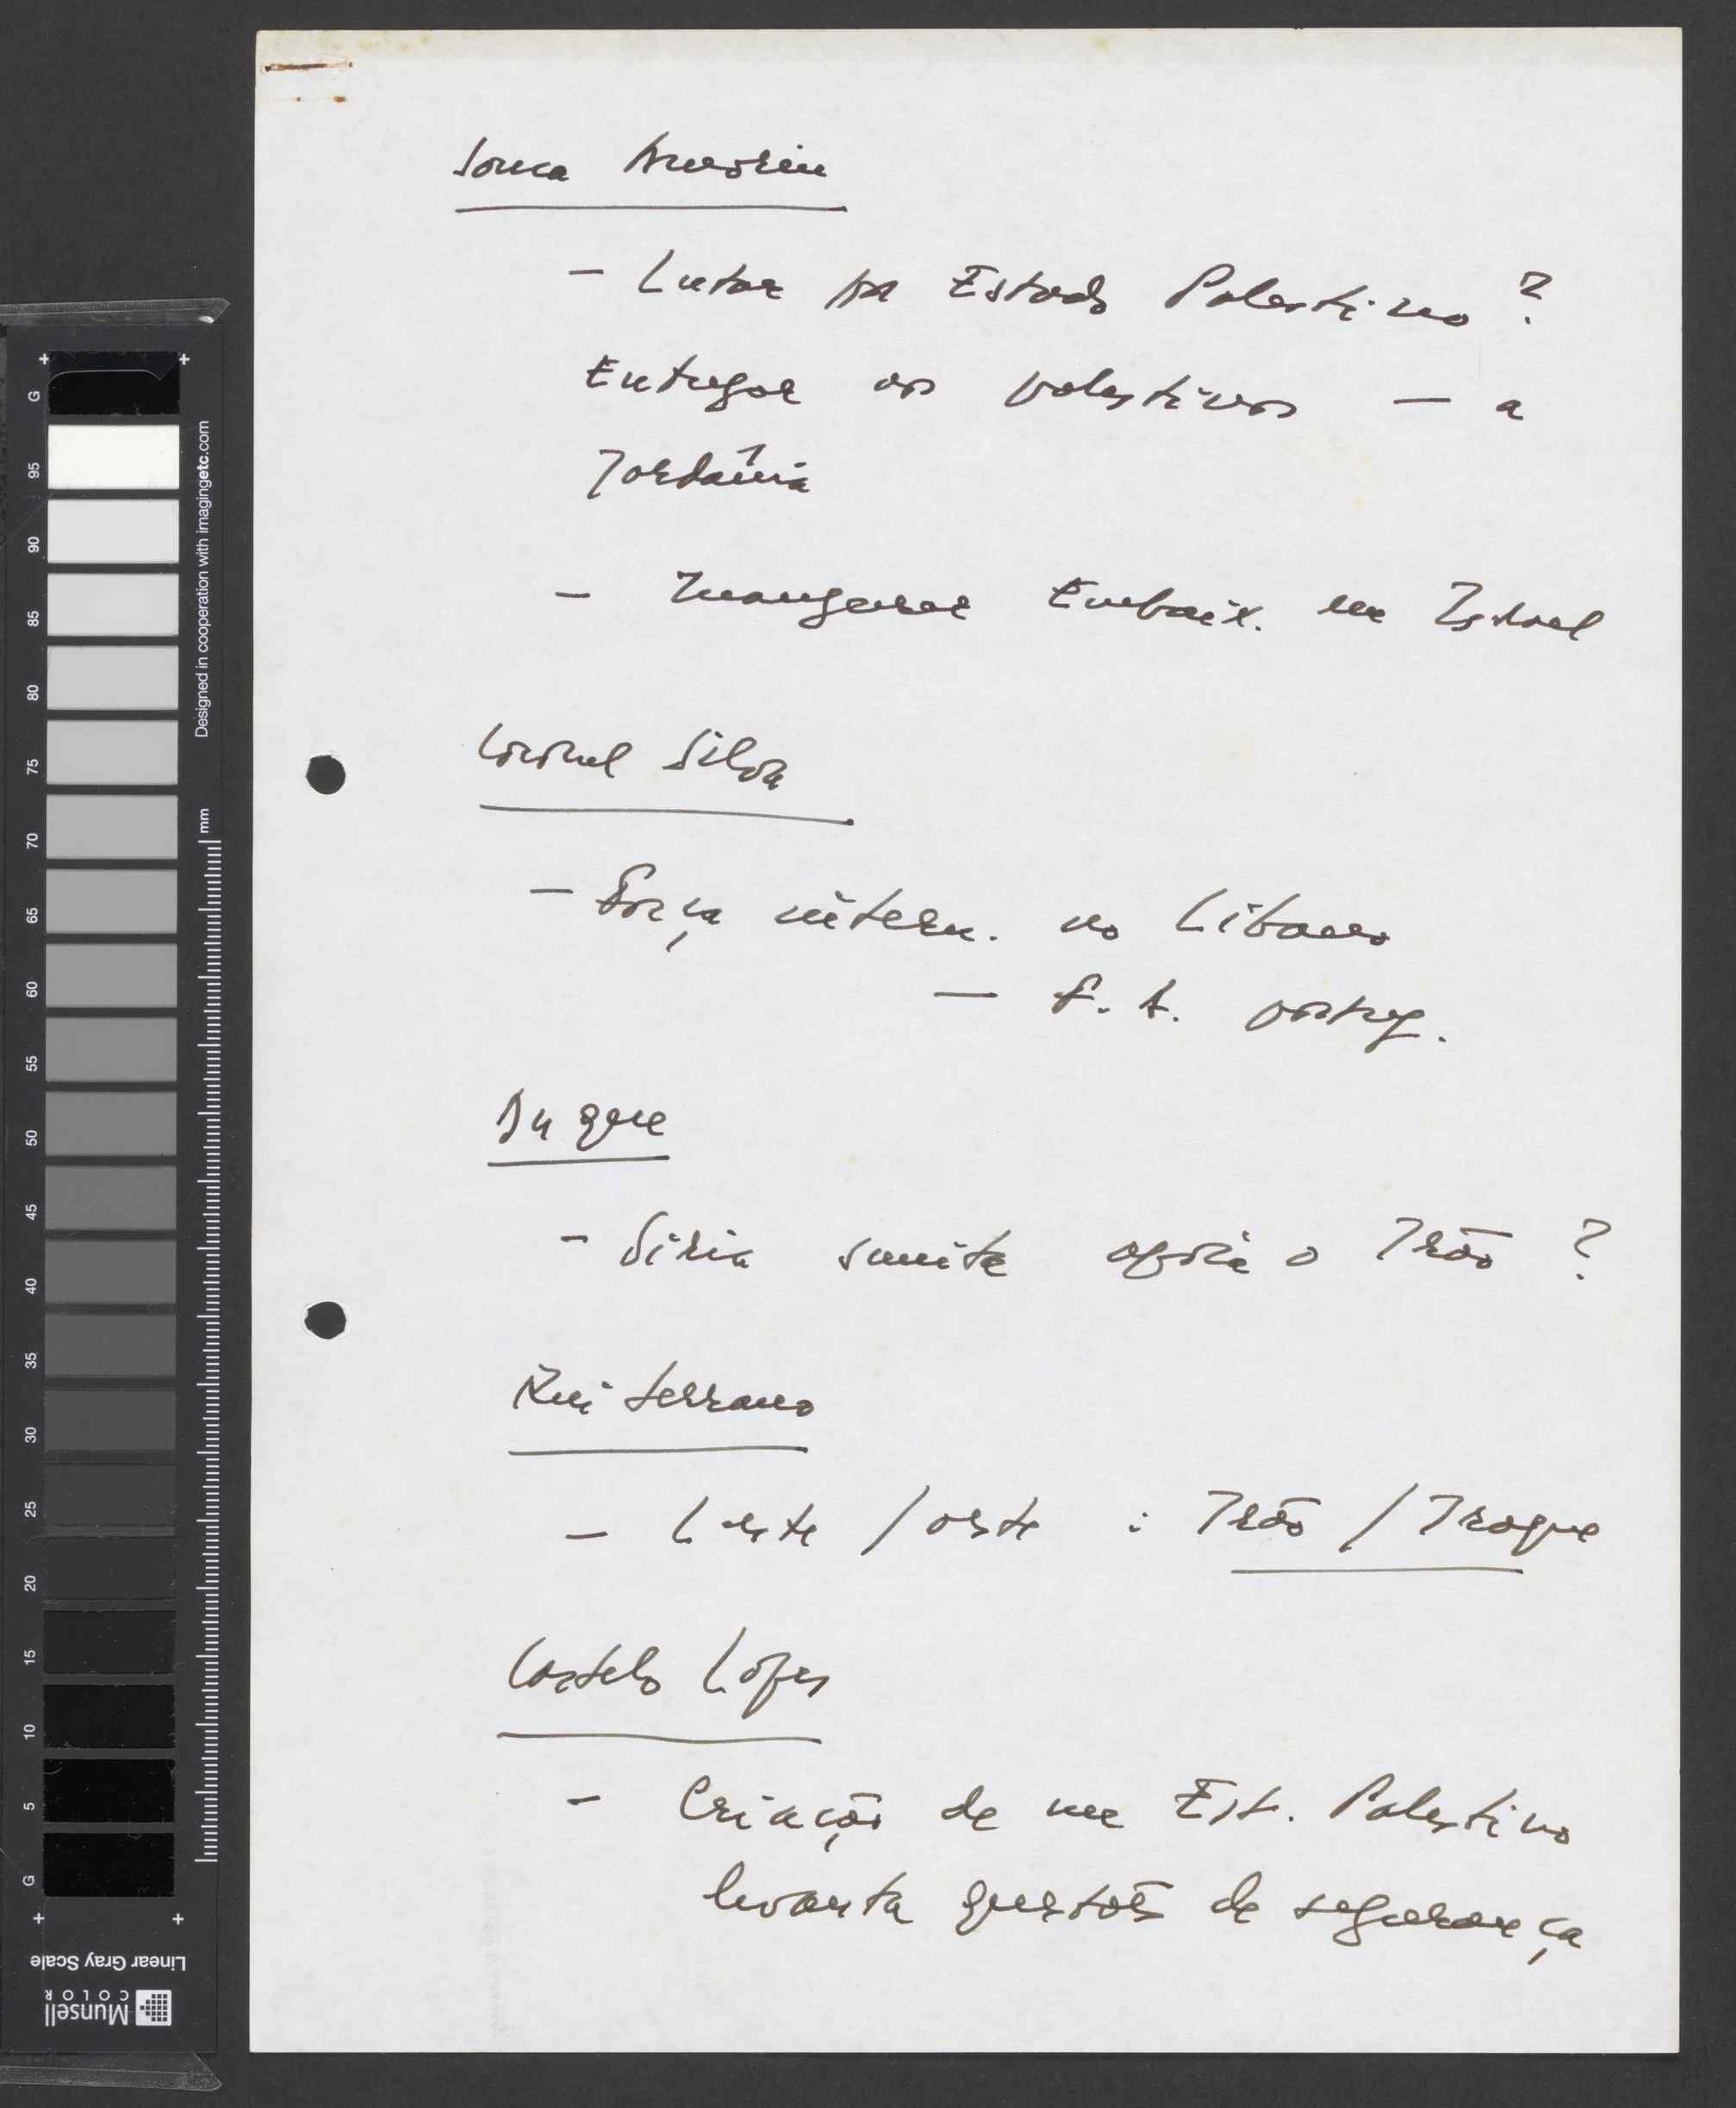 Sousa Amorim
- Lutar por Estado Palestino?
Entregar os palestinos — a
Jordânia
- Inaugurar Embaix. em Israel
Coronel Silva
- Força intern. no Líbano
— F. A. portug.
Duque
- Síria sunita apoia o Irão?
Rui Serrano
- Leste / oeste : Irão / Iraque
Castelo Lopes
- Criação de um Est. Palestino
levanta questões de segurança
G 95 90 85 80 75 70 65 60 55 50 45 40 35 30 25 20 15 10 5 G
Designed in cooperation with imagingetc.com
mm
Linear Gray Scale
Munsell
COLOR